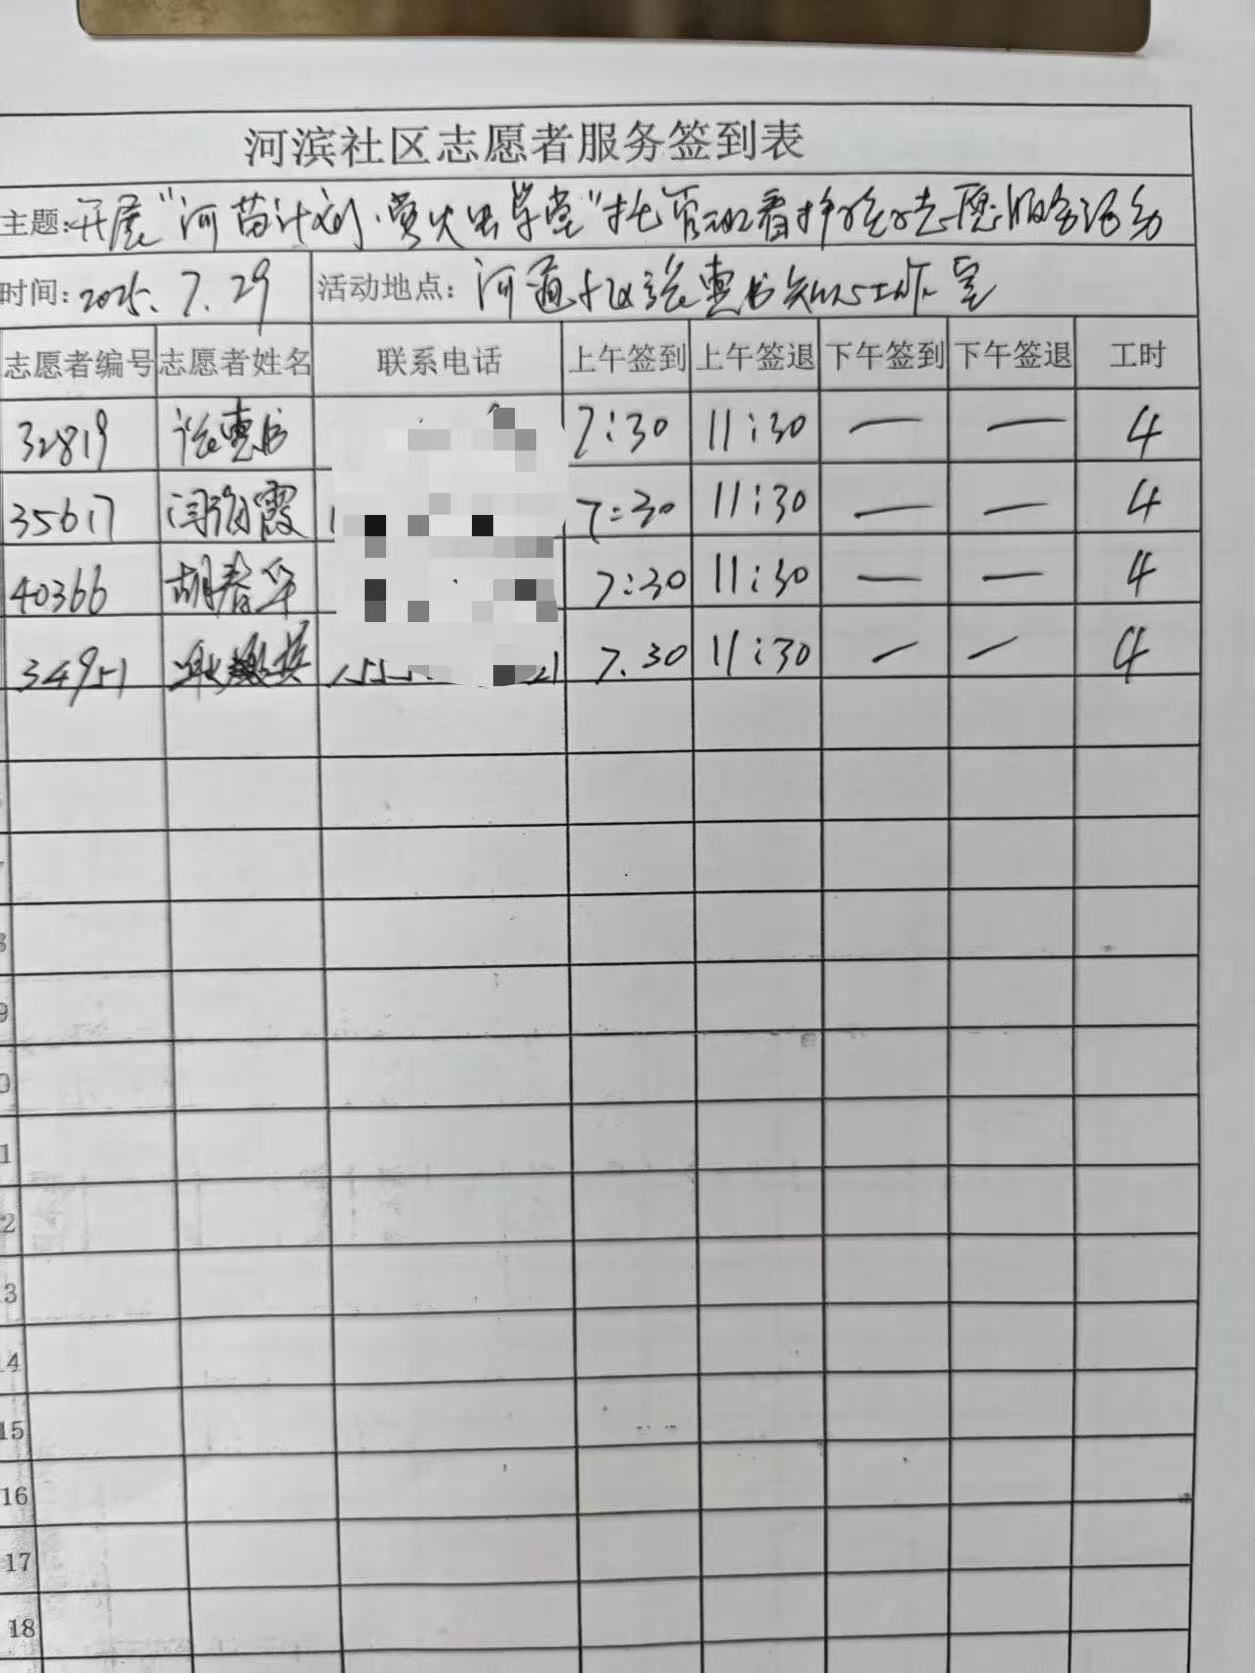 河滨社区志愿者服务签到表
主题:开展"河苗计划·萤火虫学堂"托管班看护志愿服务活动
时间: 2025. 7. 29 活动地点: 张惠书知心工作室
志愿者编号 志愿者姓名 联系电话 上午签到 上午签退 下午签到 下午签退 工时
32819 张惠书 7:30 11:30 — — 4
35617 闫 霞 7:30 11:30 — — 4
40366 胡春华 7:30 11:30 — — 4
34951 7.30 11:30 — — 4
9
0
1
2
3
14
15
16
17
18